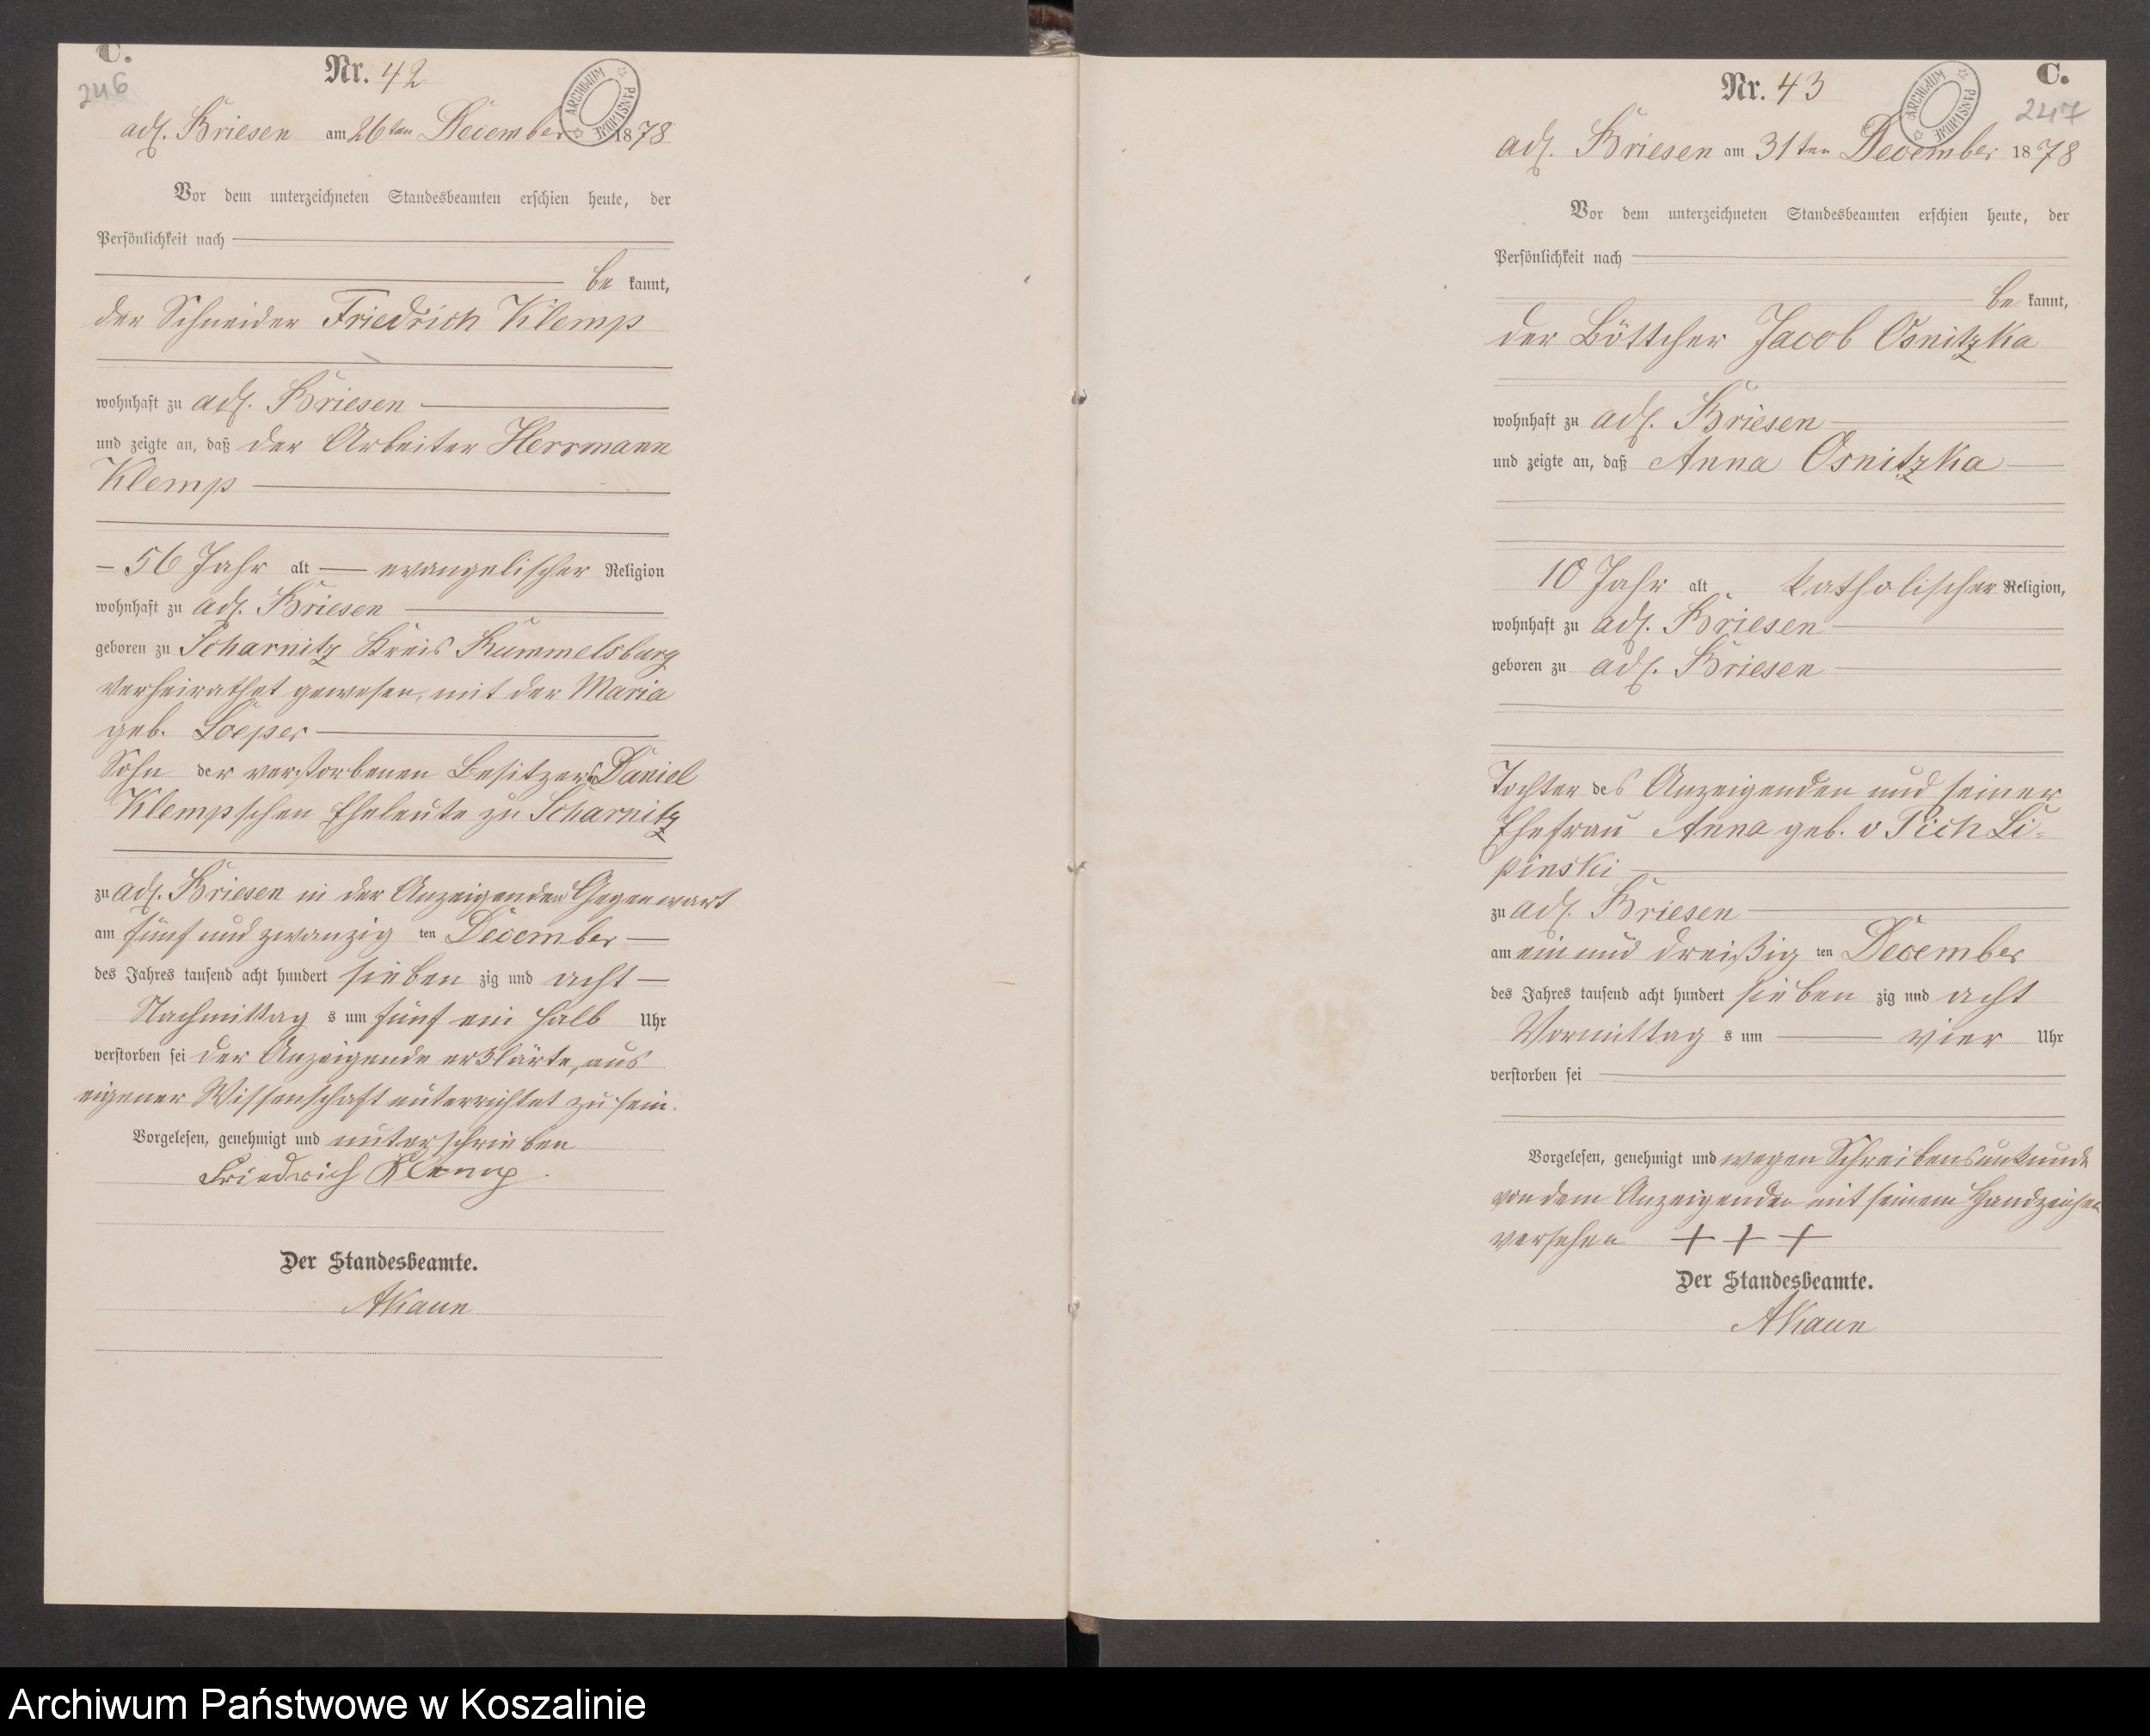 C.
246
Nr. 42
ARCHIWUM PAŃSTWOWE
adl. Briesen am 26ten December 1878
Vor dem unterzeichneten Standesbeamten erschien heute, der
Persönlichkeit nach
be kannt,
der Schneider Friedrich Klemp
wohnhaft zu adl. Briesen
und zeigte an, daß der Arbeiter Herrmann
Klemp
56 Jahr alt evangelischer Religion
wohnhaft zu adl. Briesen
geboren zu Scharnitz Kreis Rummelsburg
verheirathet gewesen, mit der Maria
geb. Loeper
Sohn der verstorbenen Besitzer Daniel
Klempschen Eheleute zu Scharnitz
zu adl. Briesen in der Anzeigenden Gegenwart
am fünf und zwanzig ten December
des Jahres tausend acht hundert sieben zig und acht
Nachmittag s um fünf ein halb Uhr
verstorben sei der Anzeigende erklärte, aus
eigener Wissenschaft unterrichtet zu sein.
Vorgelesen, genehmigt und unterschrieben
Friedrich Klemp.
Der Standesbeamte.
AKaun
C.
247
Nr. 43
ARCHIWUM PAŃSTWOWE
adl. Briesen am 31ten December 1878
Vor dem unterzeichneten Standesbeamten erschien heute, der
Persönlichkeit nach
be kannt,
der Böttcher Jacob Osnitzka
wohnhaft zu adl. Briesen
und zeigte an, daß Anna Osnitzka
10 Jahr alt katholischer Religion,
wohnhaft zu adl. Briesen
geboren zu adl. Briesen
Tochter des Anzeigenden und seiner
Ehefrau Anna geb. v Pich Li-
pinski
zu adl. Briesen
am ein und dreißig ten December
des Jahres tausend acht hundert sieben zig und acht
Vormittag s um vier Uhr
verstorben sei
Vorgelesen, genehmigt und wegen Schreibensunkunde
von dem Anzeigenden mit seinem Handzeichen
versehen + + +
Der Standesbeamte.
AKaun
Archiwum Państwowe w Koszalinie